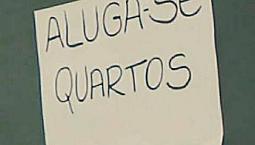 ALUGA-SE
QUARTOS